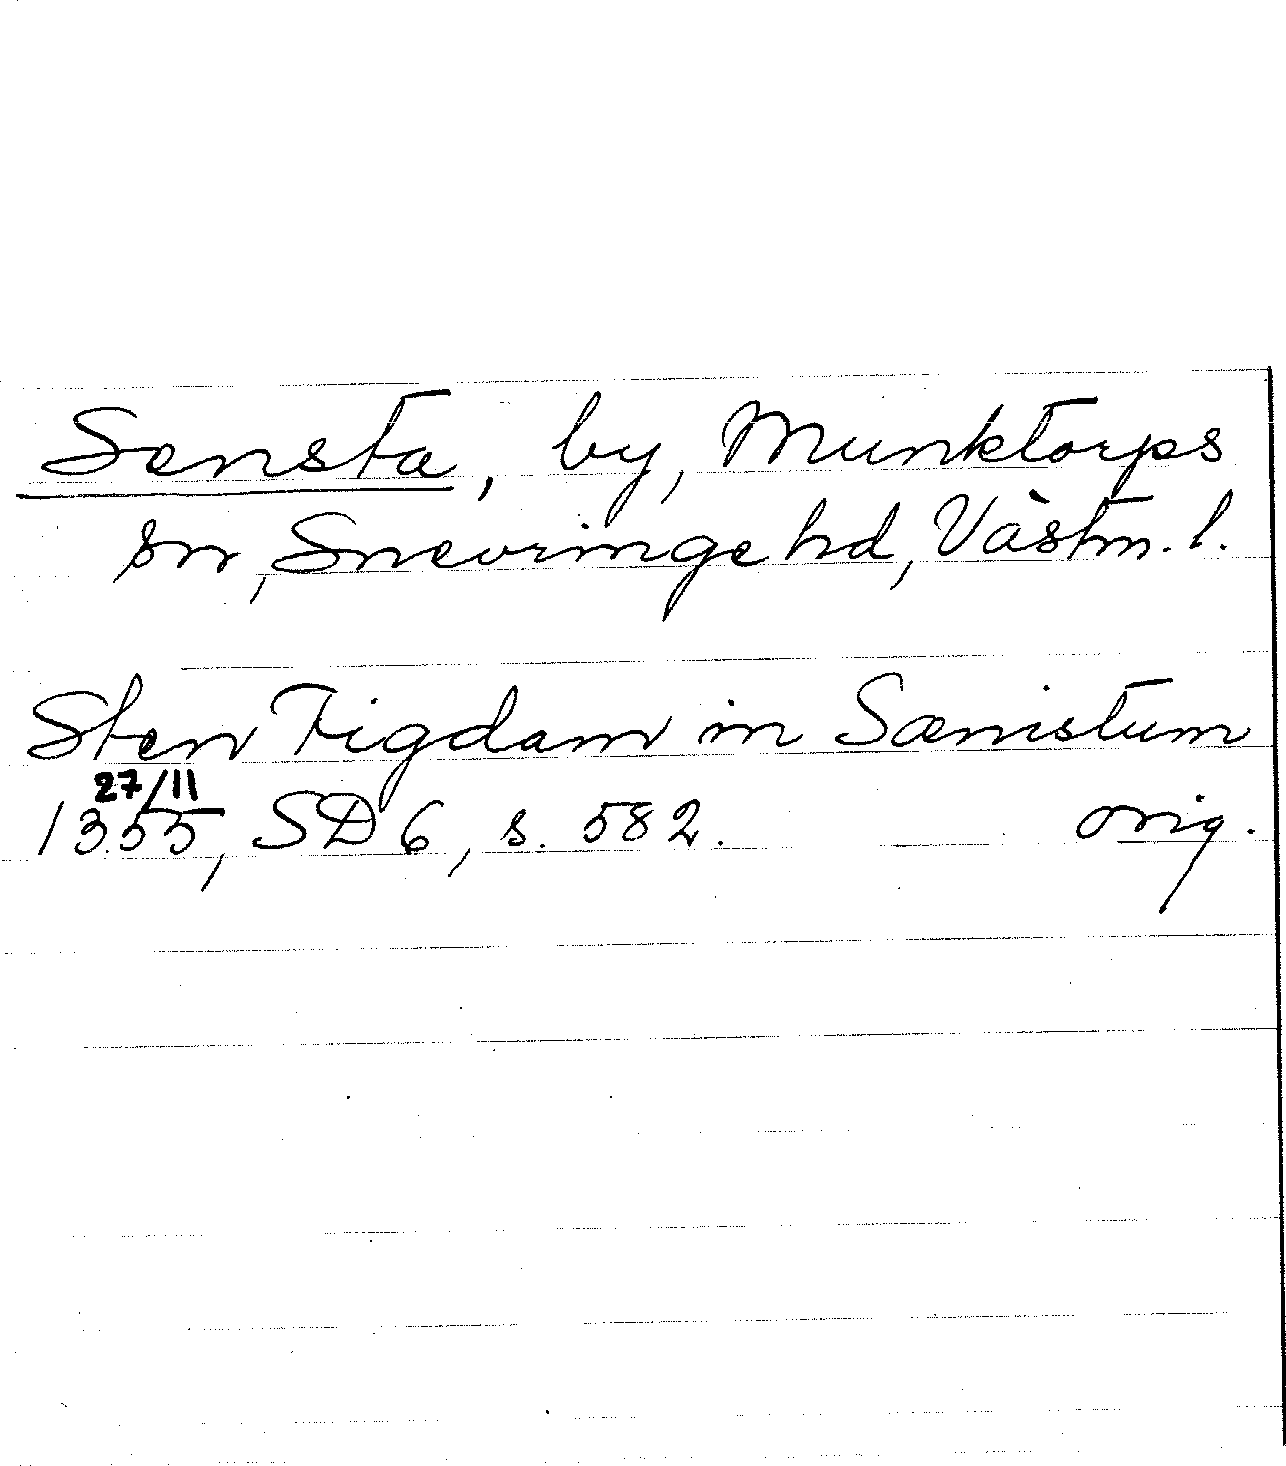 Sensta, by, Munktorps
sn, Snevringe hd, Västm. l.
Sten Tigdam in Sænistum
27/11
1355, SD 6, s. 582. orig.